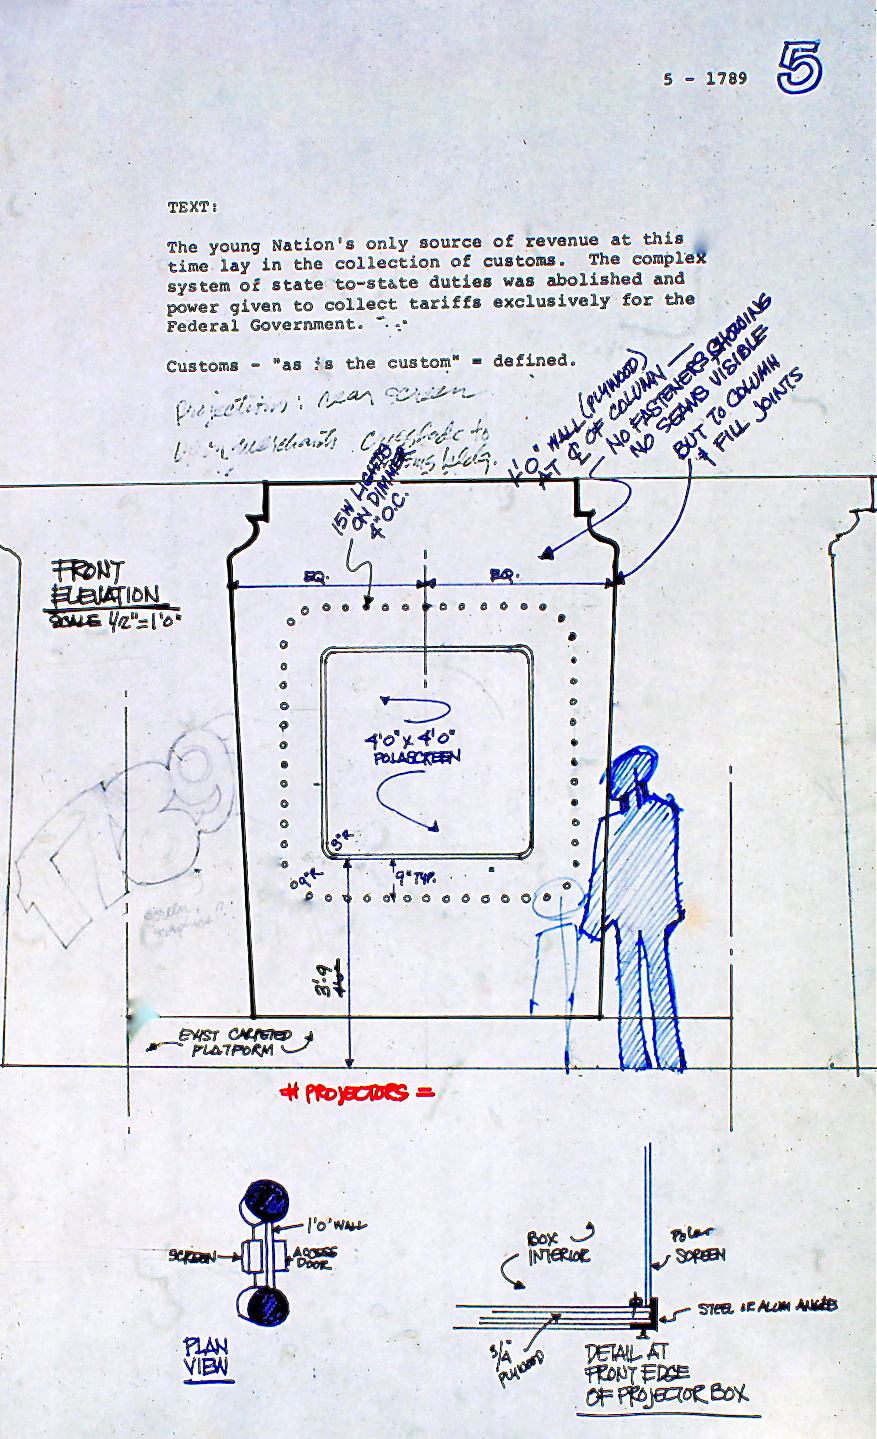 5 - 1789 5
TEXT:
The young Nation's only source of revenue at this
time lay in the collection of customs. The complex
system of state to-state duties was abolished and
power given to collect tariffs exclusively for the
Federal Government.
Customs - "as is the custom" = defined.
Projections: rear screen
1'0" WALL (PLYWOOD)
AT ℄ OF COLUMN —
NO FASTENERS SHOWING
NO SEAMS VISIBLE
BUT TO COLUMN
& FILL JOINTS
15W LIGHTS
ON DIMMER
4" O.C.
FRONT
ELEVATION
SCALE 1/2"=1'0"
EQ. EQ.
4'0" x 4'0"
POLASCREEN
1789
3"R
9"R
9" TYP.
3'-9
EXIST CARPETED
PLATFORM
# PROJECTORS =
1'0" WALL
SCREEN
ACCESS
DOOR
PLAN
VIEW
BOX
INTERIOR
Polar
SCREEN
STEEL or ALUM ANGLES
3/4"
PLYWOOD
DETAIL AT
FRONT EDGE
OF PROJECTOR BOX